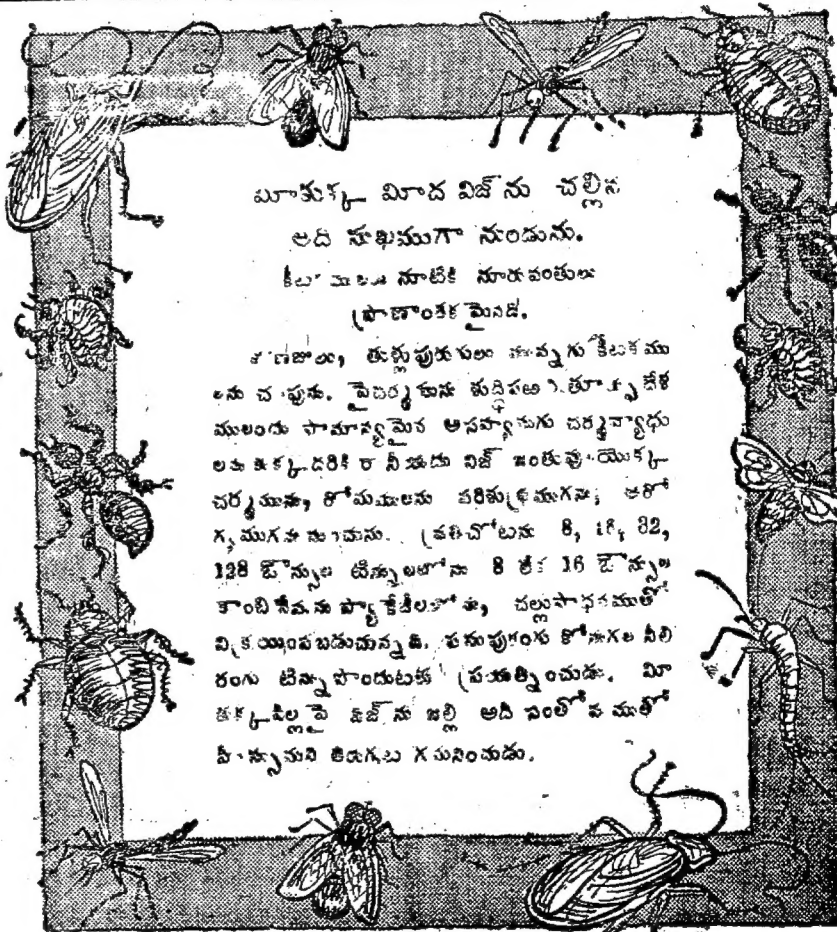 మీకుక్క మీద విజ్‌ను చల్లిన
అది సుఖముగా నుండును.
నూటికి నూరువంతులు
ప్రాణాంతక మైనది.
తుళ్లుపురుగులు మున్నగు కీటకము
లను చంపును. పైచర్మమును
ములందు సామాన్యమైన అసహ్యమగు చర్మవ్యాధు
లను కుక్క దరికి రానీయదు విజ్ జంతువుయొక్క
చర్మమును, రోమములను పరిశుభ్రముగను, ఆరో
గ్యముగను నుంచును. ప్రతిచోటను 8, 16, 32,
128 ఔన్సుల టిన్నులలోను 8 లేక 16 ఔన్సుల
కాంబి నేషను ప్యాకేజీలలోను, చల్లుసాధనముతో
విక్రయింపబడుచున్నది. పసుపురంగు కోనుగల నీలి
రంగు టిన్ను పొందుటకు ప్రయత్నించుడు. మీ
కుక్కపిల్ల పై విజ్‌ను జల్లి అది సంతోషముతో
తిరుగుట గమనించుడు.